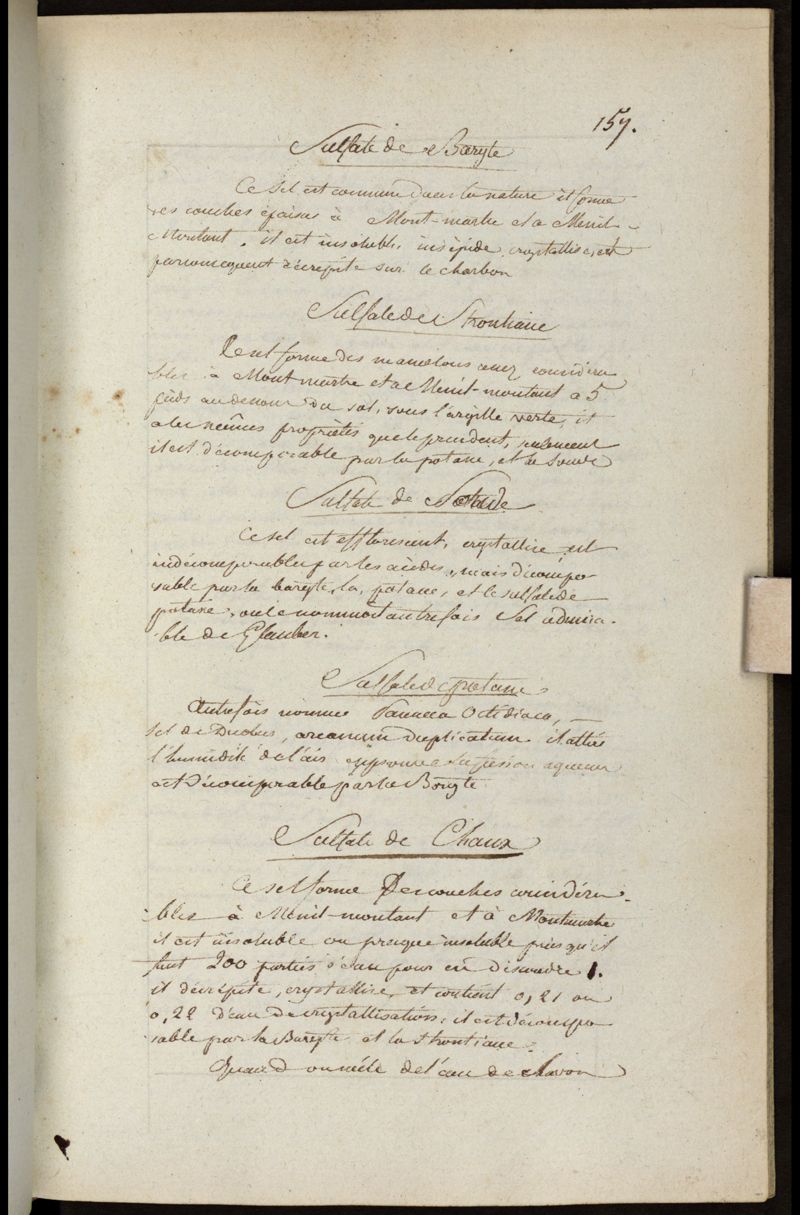 157.
Sulfate de Baryte
Ce sel est commun dans la nature il forme
des couches épaisses à Mont-martre et a Menil-
Montant. il est insoluble, insipide, crystallise, et
par consequent décrépite sur le charbon
Sulfate de Strontiane
Ce sel forme des mamelons assez considéra
bles à Mont martre et a Menil-montant a 5
pieds au dessous du sol, sous l'argille verte, il
a les mêmes propriétés que le précédent, seulement
il est décomposable par la potasse, et la soude
Sulfate de Soude
Ce sel est efflorescent, crystallise est
indécomposables par les acides, mais décompo-
sable par la baryte, la potasse, et le sulfate de
potasse, on le nommoit autrefois Sel admira-
-ble de Glauber.
Sulfate de potasse
Autrefois nommé Panacea
Sel de Duobus, arcanum duplicatum il attire
l'humidité de l'air éprouve la fusion aqueuse
est décomposable par la Baryte
Sulfate de Chaux
Ce sel forme Des couches considéra-
-bles à Ménil-montant et à Montmartre
il est insoluble ou presque insoluble puisqu'il
faut 200 parties d'eau pour en dissoudre 1.
il décrépite, crystallise, et contient 0,21 ou
0,22 d'eau de crystallisation, il est décompo
sable par la Baryte et la Strontiane.
Quand on mêle de l'eau de savon